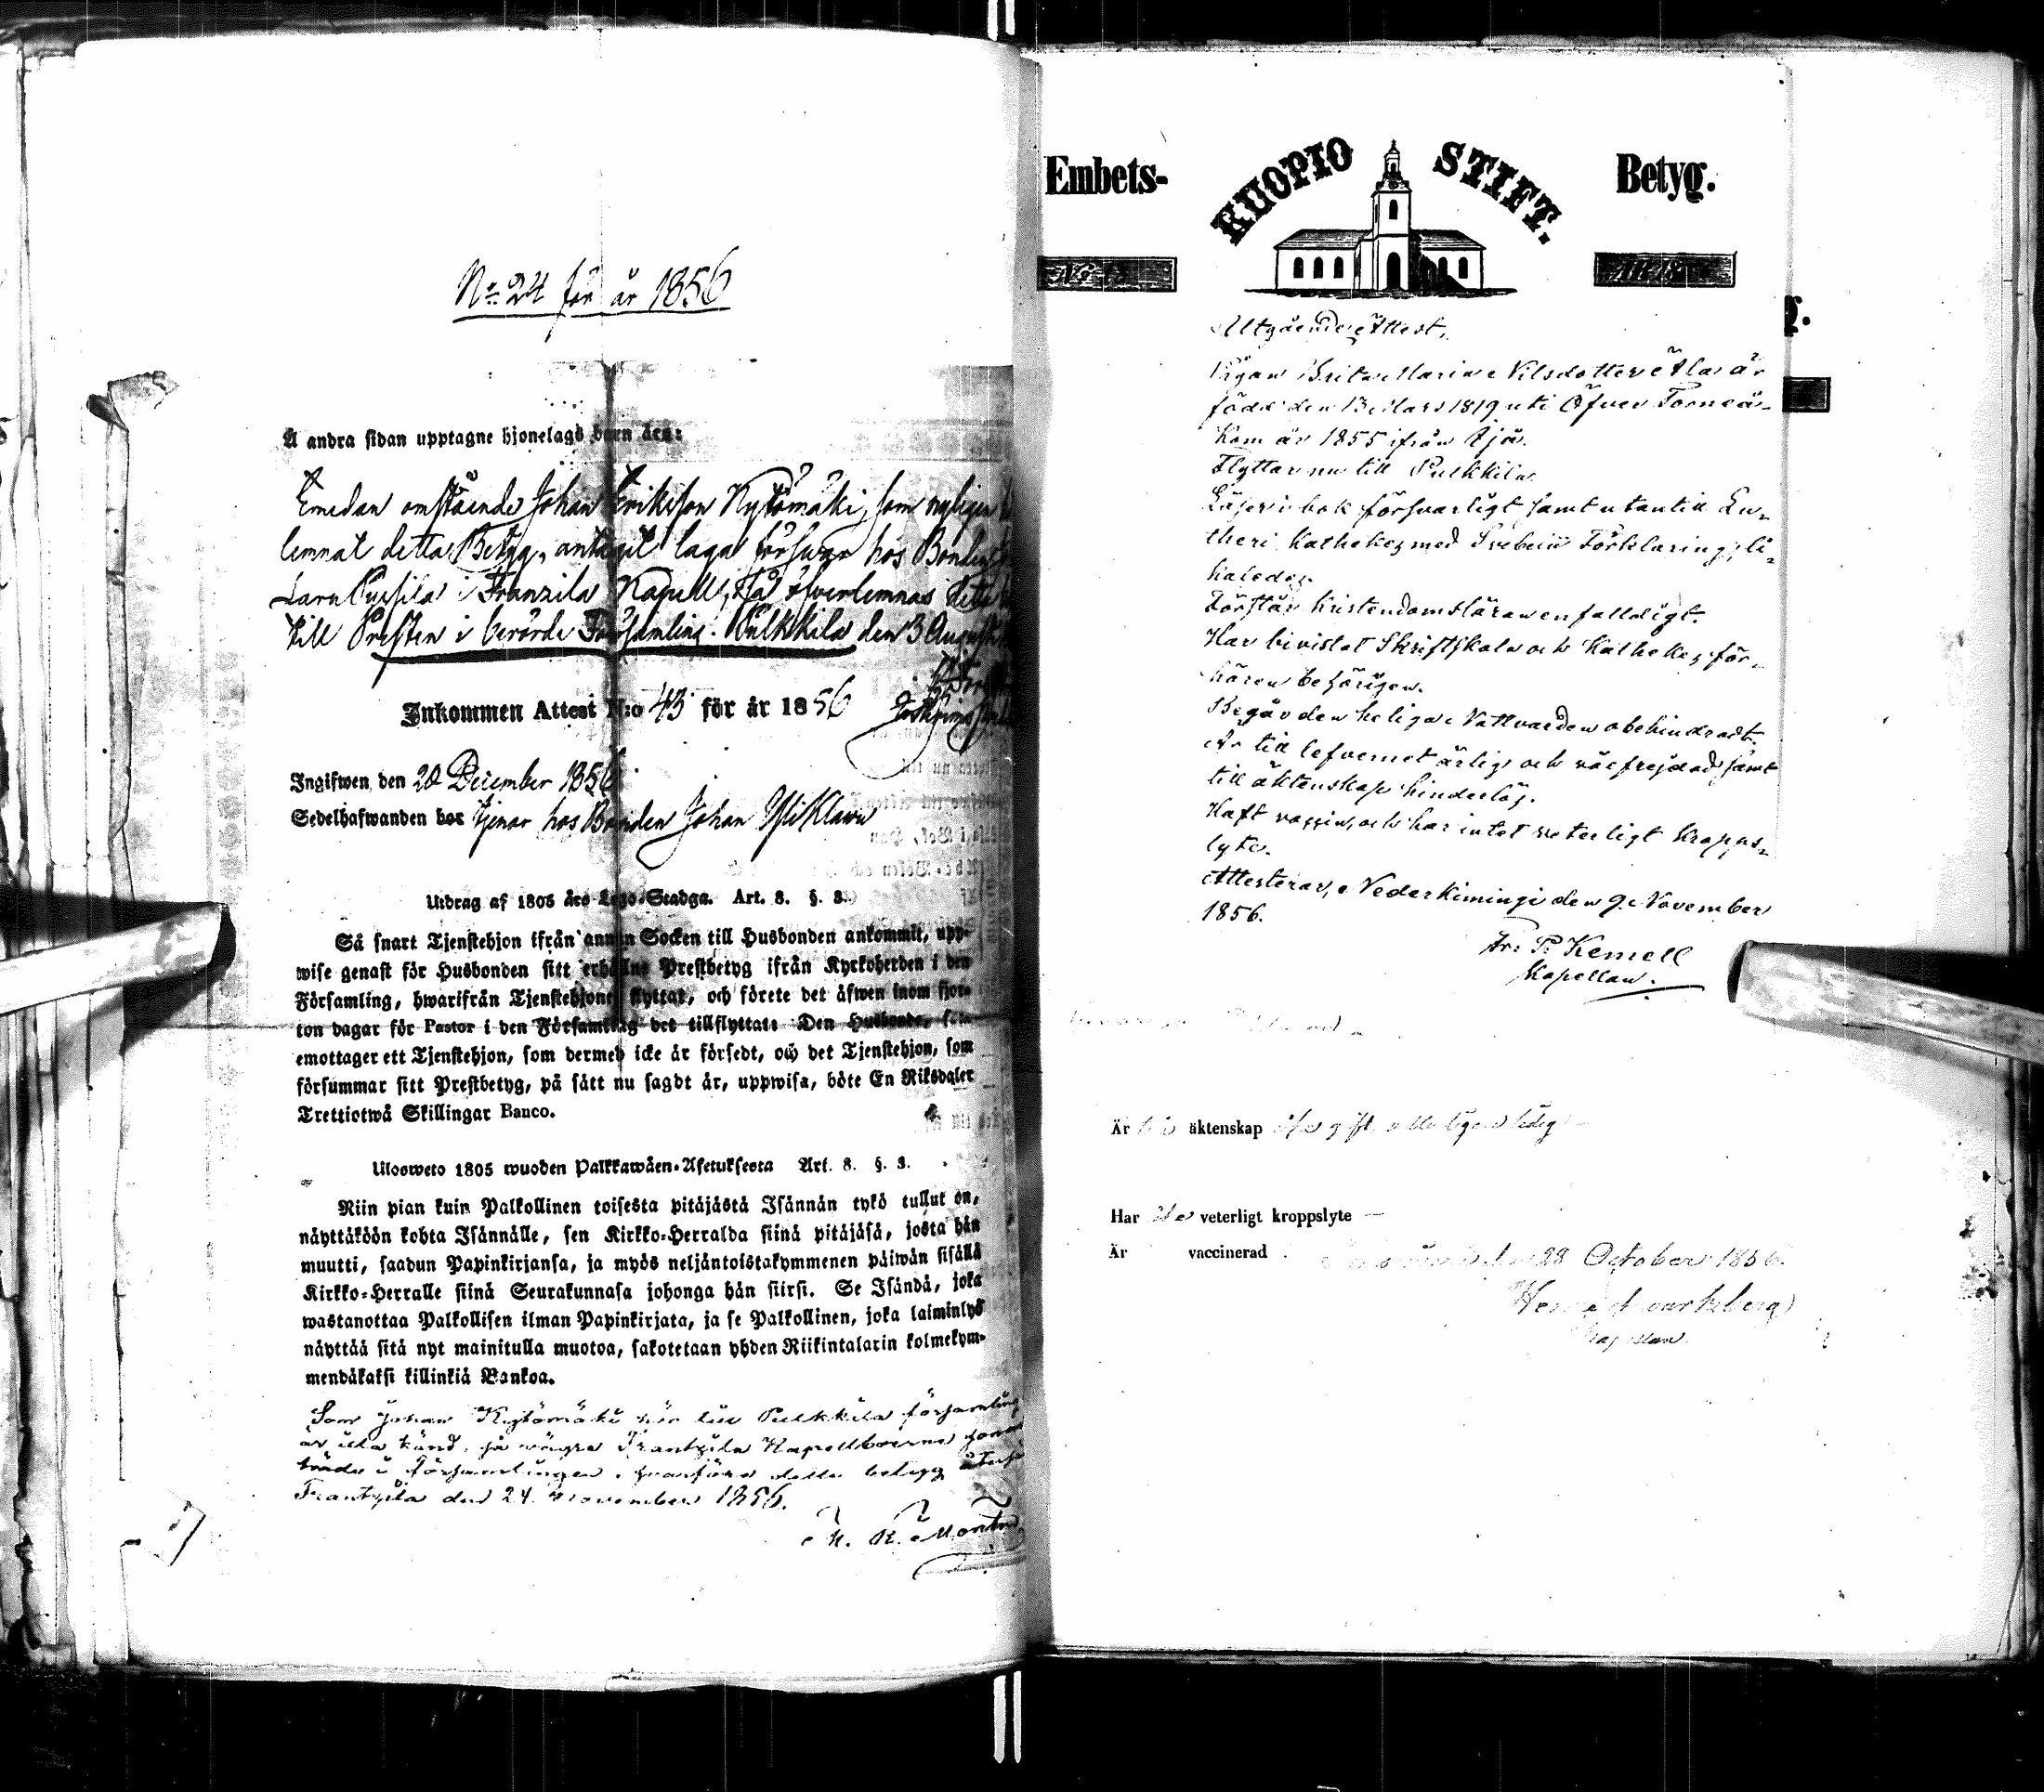 No 24 för år 1856
Å andra sidan upptagne hjonelags barn äro:
Emedan omstående Johan Eriksson Kytömäki, som nyligen
lemnat detta Betyg, antagit laga försvar hos Bonden
Lars Pursila i Franzila Kapell, så öfverlemnas detta
till Presten i berörde Församling. Pulkkila den 3 August
Inkommen Attest N:o 43 för år 1856
Ingifwen den 20 December 1856
Sedelhafwanden bor tjenar hos Bonden Johan
Utdrag af 1805 års Lego-Stadga. Art. 8. §. 3.
Så snart Tjenstehjon ifrån annan Socken till Husbonden ankommit, upp-
wise genast för Husbonden sitt erhållne Prestbetyg ifrån Kyrkoherden i den
Församling, hwarifrån Tjenstehjonet flyttat, och förete det äfwen inom fjor-
ton dagar för Pastor i den Församling det tillflyttat: Den Husbonde, som
emottager ett Tjenstehjon, som dermed icke är försedt, och det Tjenstehjon, som
försummar sitt Prestbetyg, på sätt nu sagdt är, uppwisa, böte En Riksdaler
Trettiotwå Skillingar Banco.
Ulosweto 1805 wuoden Palkkawäen-Asetuksesta Art. 8. §. 3.
Niin pian kuin Palkollinen toisesta pitäjästä Isännän tykö tullut on,
näyttäköön kohta Isännälle, sen Kirkko-Herralda siinä pitäjäsä, josta hän
muutti, saadun Papinkirjansa, ja myös neljäntoistakymmenen päiwän sisällä
Kirkko-Herralle siinä Seurakunnasa johonga hän siirsi. Se Isändä, joka
wastanottaa Palkollisen ilman Papinkirjata, ja se Palkollinen, joka laiminlyö
näyttää sitä nyt mainitulla muotoa, sakotetaan yhden Riikintalarin kolmekym-
mendäkaksi killinkiä Bankoa.
Som Johan Kytömäki här till Pulkkila församling
är illa känd, så vägra Frantzila Kapellboerne honom
träde i församlingen, hvarföre detta betyg
Frantzila den 24 November 1856.
Embets- KUOPIO STIFT. Betyg.
Utgående Attest.
Pigan Brita Maria Nilsdotter Ala är
född den 13 Mars 1819 uti Öfver Torneå.
Kom år 1855 ifrån Ijo.
Flyttar nu till Pulkkila.
Läser i bok försvarligt samt utantill Lu-
theri Kathekes med Svebelii Förklaring, li-
kaledes.
Förstår Kristendomsläran enfalldigt.
Har bivistat Skriftskola och Kathekes för-
hören behörigen.
Begår den heliga Nattvarden obehindradt.
Är till lefvernet ärlig och välfrejdad samt
till äktenskap hinderlös.
Haft vaccin, och har intet veterligt kropps-
lyte.
Attesterar, Nederkimingi den 9 November
1856.
Fr: P: Kemell
Kapellan.
Är till äktenskap
Har veterligt kroppslyte
Är vaccinerad
28 October 1856.